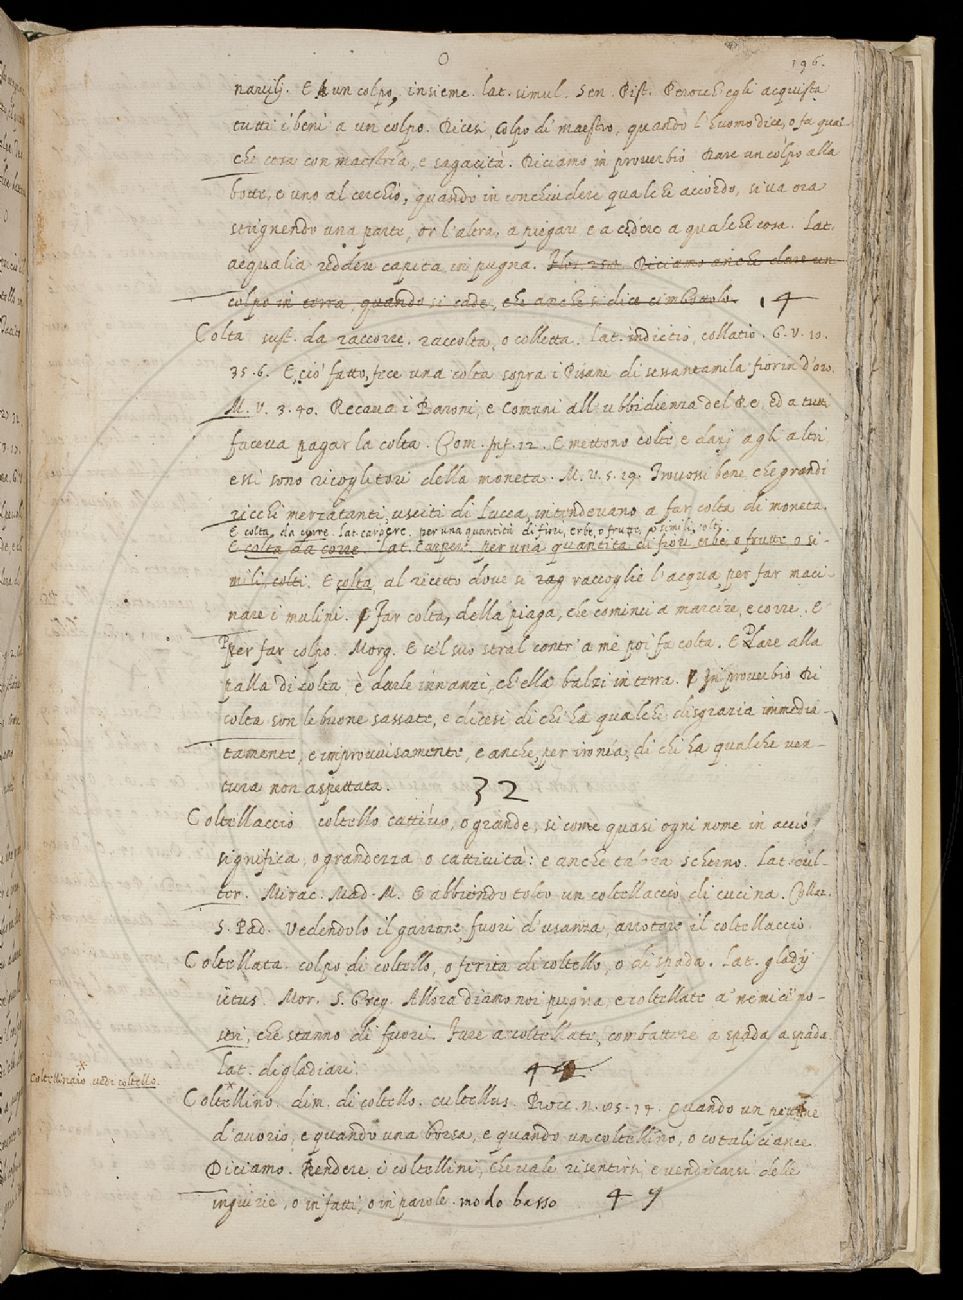 O
196.
nanzilj. E A un colpo, insieme. lat. simul. Sen. Pist. Perocch' egli acquista
tutti i beni a un colpo. Dicesi, Colpo di maestro, quando l'huomo dice, o fa qual-
che cosa con maestria, e sagacità. Diciamo in proverbio Dare un colpo alla
botte, e uno al cerchio, quando in conchiudere qualche accordo, si va ora
strignendo una parte, or l'altra, a piegare e a cedere a qualche cosa. Lat.
aequalia reddere capita in pugna. Diciamo anche dare un
colpo in terra, quando si cade, che anche si dice cimbottolo. 14
Colta sust. da raccorre. raccolta, o colletta. Lat. indictio, collatio. G. V. 10.
35. 6. E ciò fatto, fece una colta sopra i Pisani di sessantamila fiorin d'oro.
M. V. 3. 40. Recava i Baroni, e Comuni all'ubbidienza del Re, ed a tutti
faceva pagar la colta. Com. inf. 12. E mettono colte e dazj agli altri,
essi sono ricoglitori della moneta. M. V. 5. 29. Trovossi bene, che grandi
ricchi mercatanti usciti di Lucca, intendevano a far colta di moneta.
E colta da corre. lat. carpere. per una quantità di fiori, erbe, o frutte, o simili, colti.
E colta da corre. lat. carpere. per una quantità di fiori erbe o frutte o si-
mili, colti. E colta, al ricetto dove si rag raccoglie l'acqua, per far maci-
nare i mulini. Far colta, della piaga, che cominci a marcire, e corre. E
per far colpo. Morg. E se'l suo stral contr'a me poi fa colta. E Dare alla
palla di colta, è darle innanzi, ch'ella balzi in terra. In proverbio Di
colta son le buone sassate, e dicesi di chi ha qualche disgrazia immedia-
tamente, e improvvisamente, e anche, per ironia, di chi ha qualche ven-
tura non aspettata. 32
Coltellaccio coltello cattivo, o grande, si come quasi ogni nome in accio
significa, o grandezza o cattività: e anche talora scherno. Lat. cul-
ter. Mirac. Mad. M. E abbiendo tolto un coltellaccio di cucina. Collaz.
S. Pad. Vedendolo il garzone, fuori d'usanza, arrotare il coltellaccio.
Coltellata. colpo di coltello, o ferita di coltello, o di spada. Lat. gladij
ictus. Mor. S. Greg. Allora diamo noi pugna, e coltellate a' nemici no-
stri, che stanno di fuori. Fare a coltellate, combattere a spada a spada.
Lat. digladiari. 4
* Coltellinaio vedi coltello.
Coltellino. dim. di coltello. cultellus. Bocc. n. 85. 14. Quando un pettine
d'avorio, e quando una borsa, e quando un coltellino, o cotali ciance
Diciamo. Rendere i coltellini, che vale risentirsi, e vendicarsi delle
ingiurie, o in fatti, o in parole. modo basso 4 9